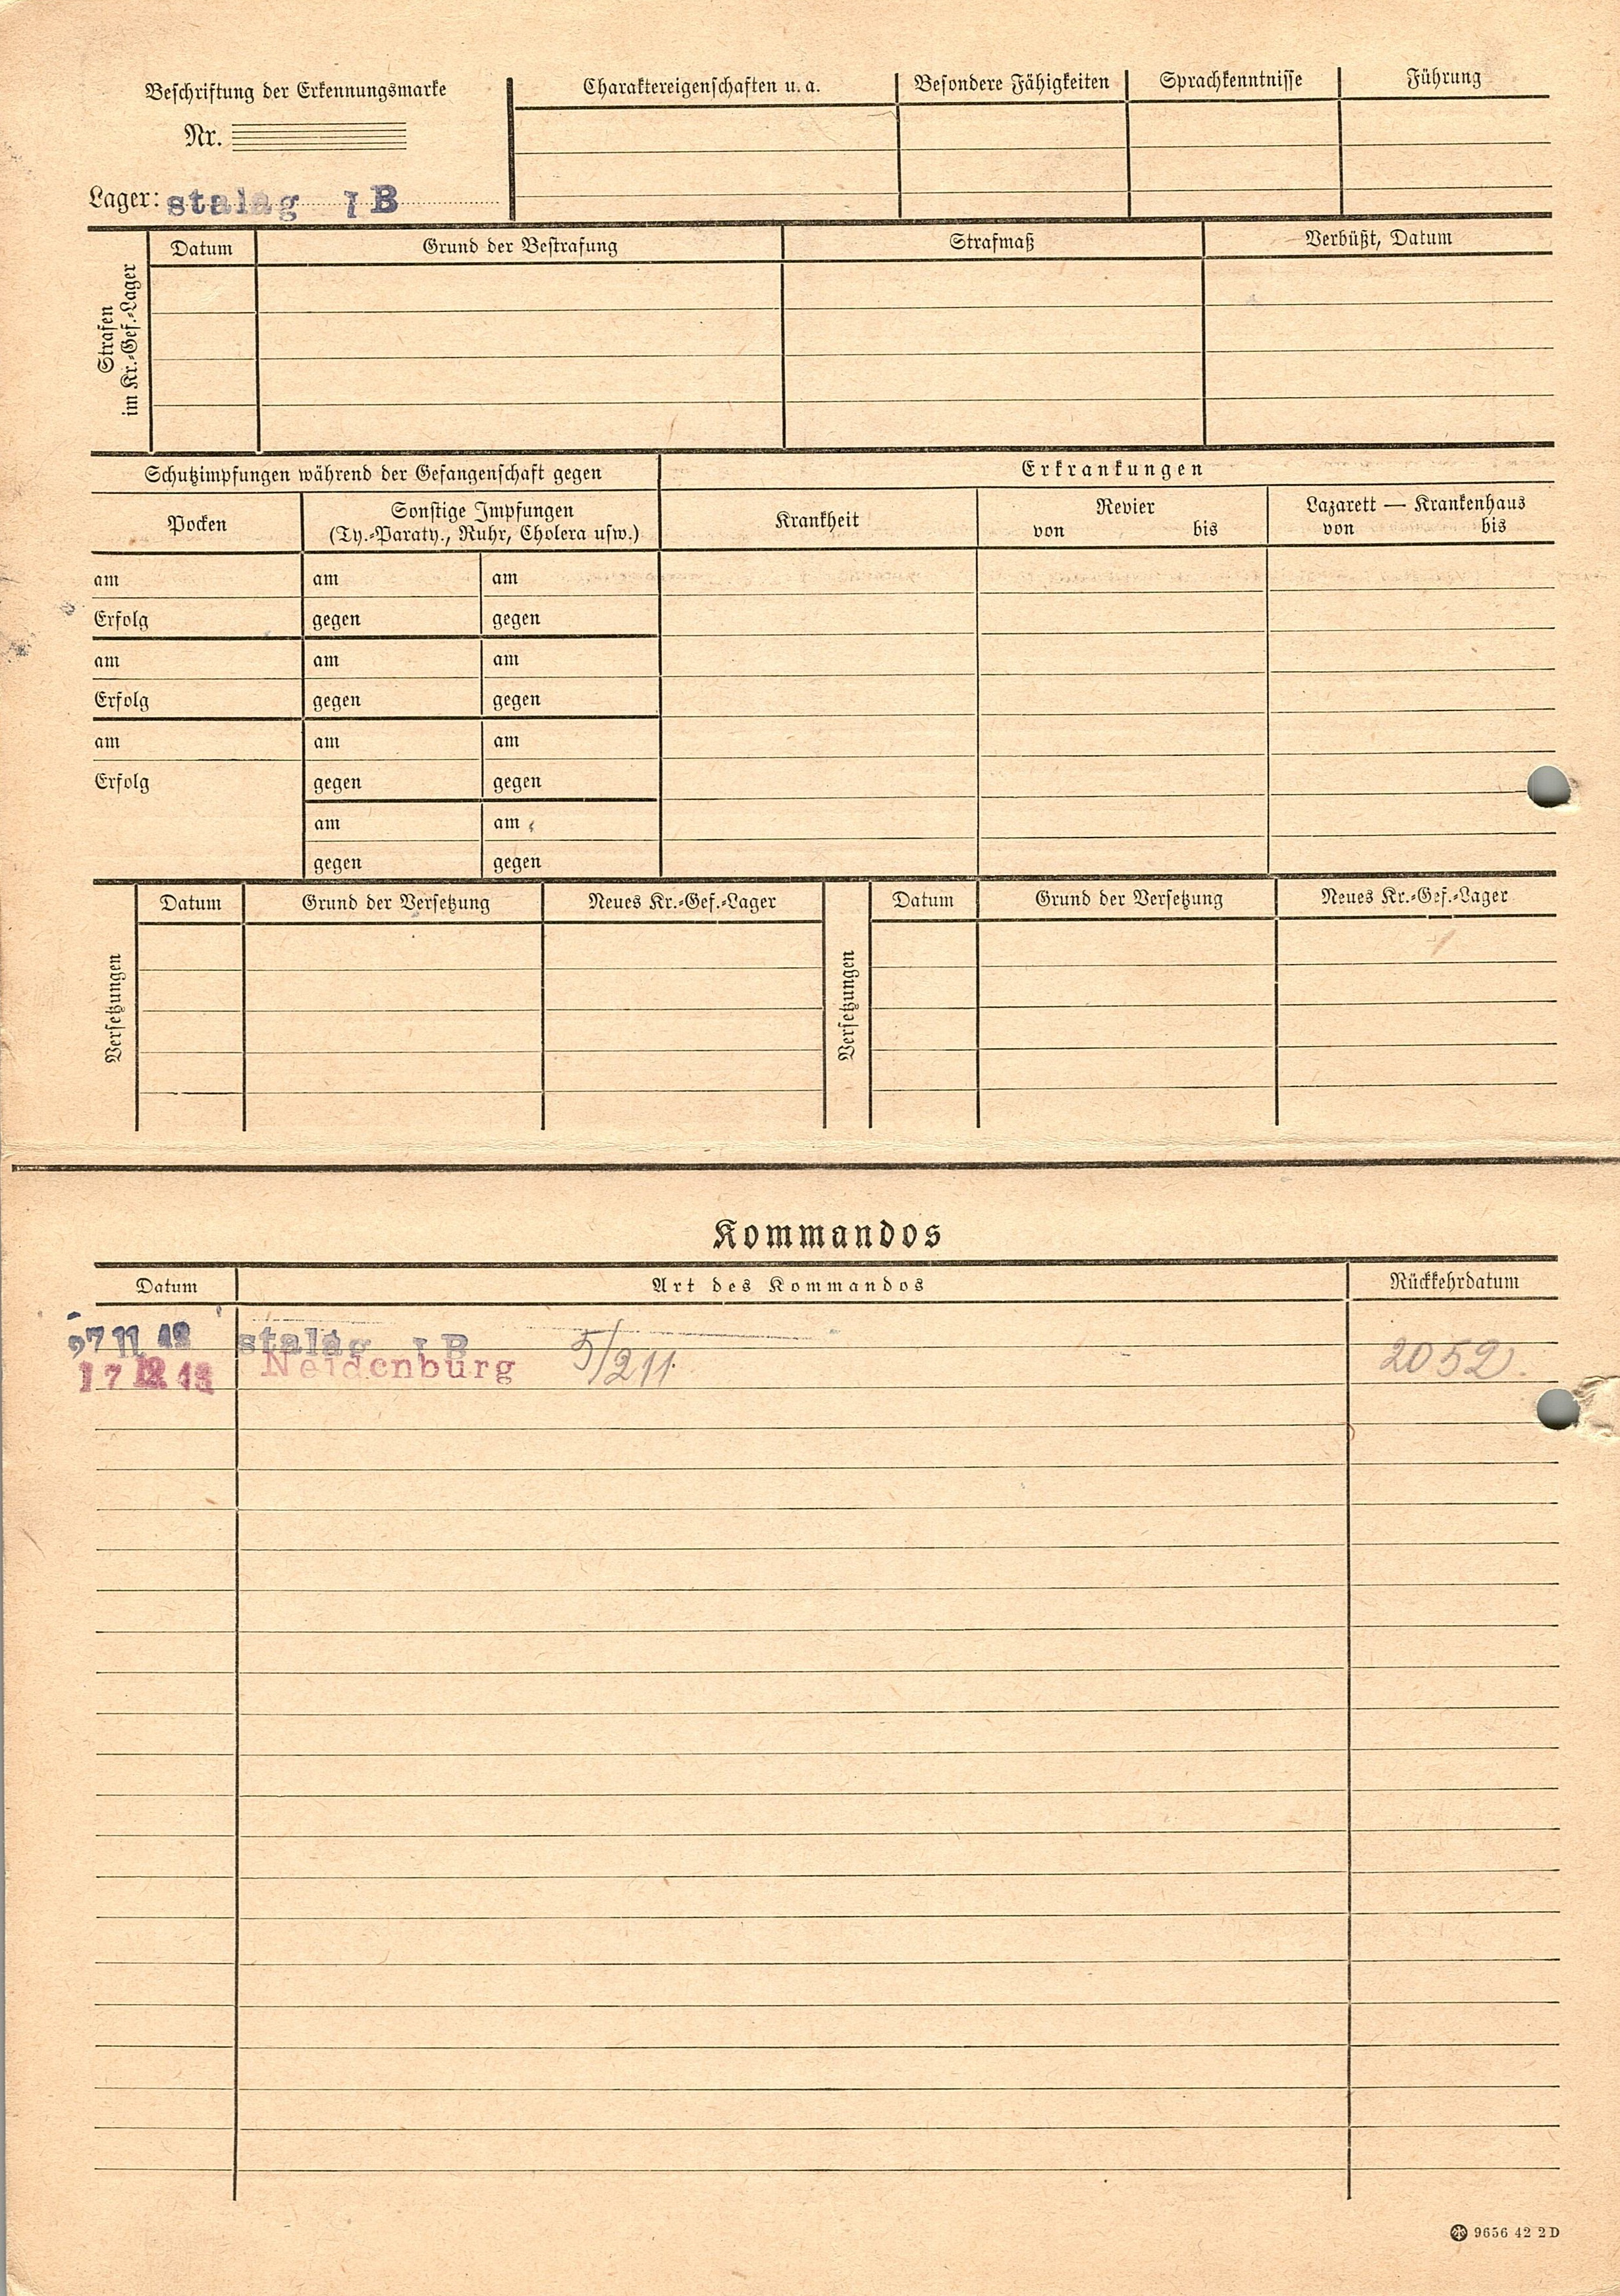 Beschriftung der Erkennungsmarke
Nr.
Lager: stalag I B
Charaktereigenschaften u. a. Besondere Fähigkeiten Sprachkenntnisse Führung
Strafen
im Kr.-Gef.-Lager
Datum Grund der Bestrafung Strafmaß Verbüßt, Datum
Schutzimpfungen während der Gefangenschaft gegen Erkrankungen
Pocken Sonstige Impfungen Krankheit Revier Lazarett — Krankenhaus
(Ty.-Paraty., Ruhr, Cholera usw.) von bis von bis
am am am
Erfolg gegen gegen
am am am
Erfolg gegen gegen
am am am
Erfolg gegen gegen
am am
gegen gegen
Versetzungen
Datum Grund der Versetzung Neues Kr.-Gef.-Lager
Versetzungen
Datum Grund der Versetzung Neues Kr.-Gef.-Lager
Kommandos
Datum Art des Kommandos Rückkehrdatum
stalag I B
17 12 43 Neidenburg 5/211. 2052.
9656 42 2 D